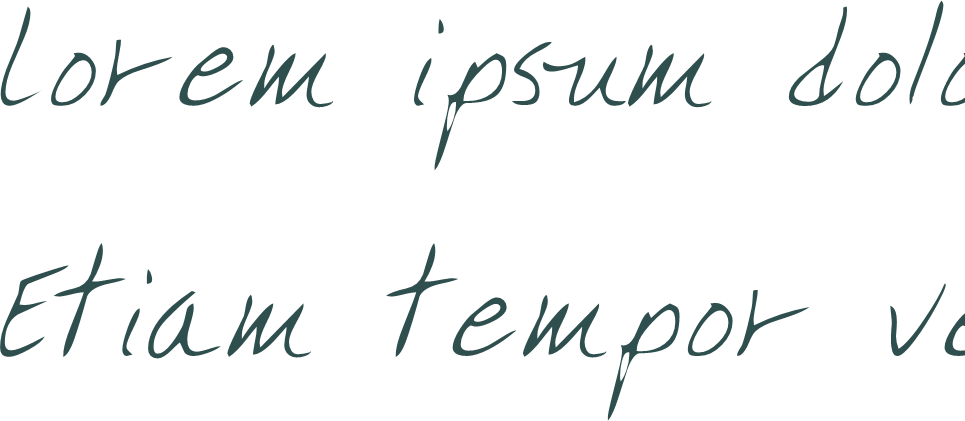 Lorem ipsum dolo
Etiam tempor